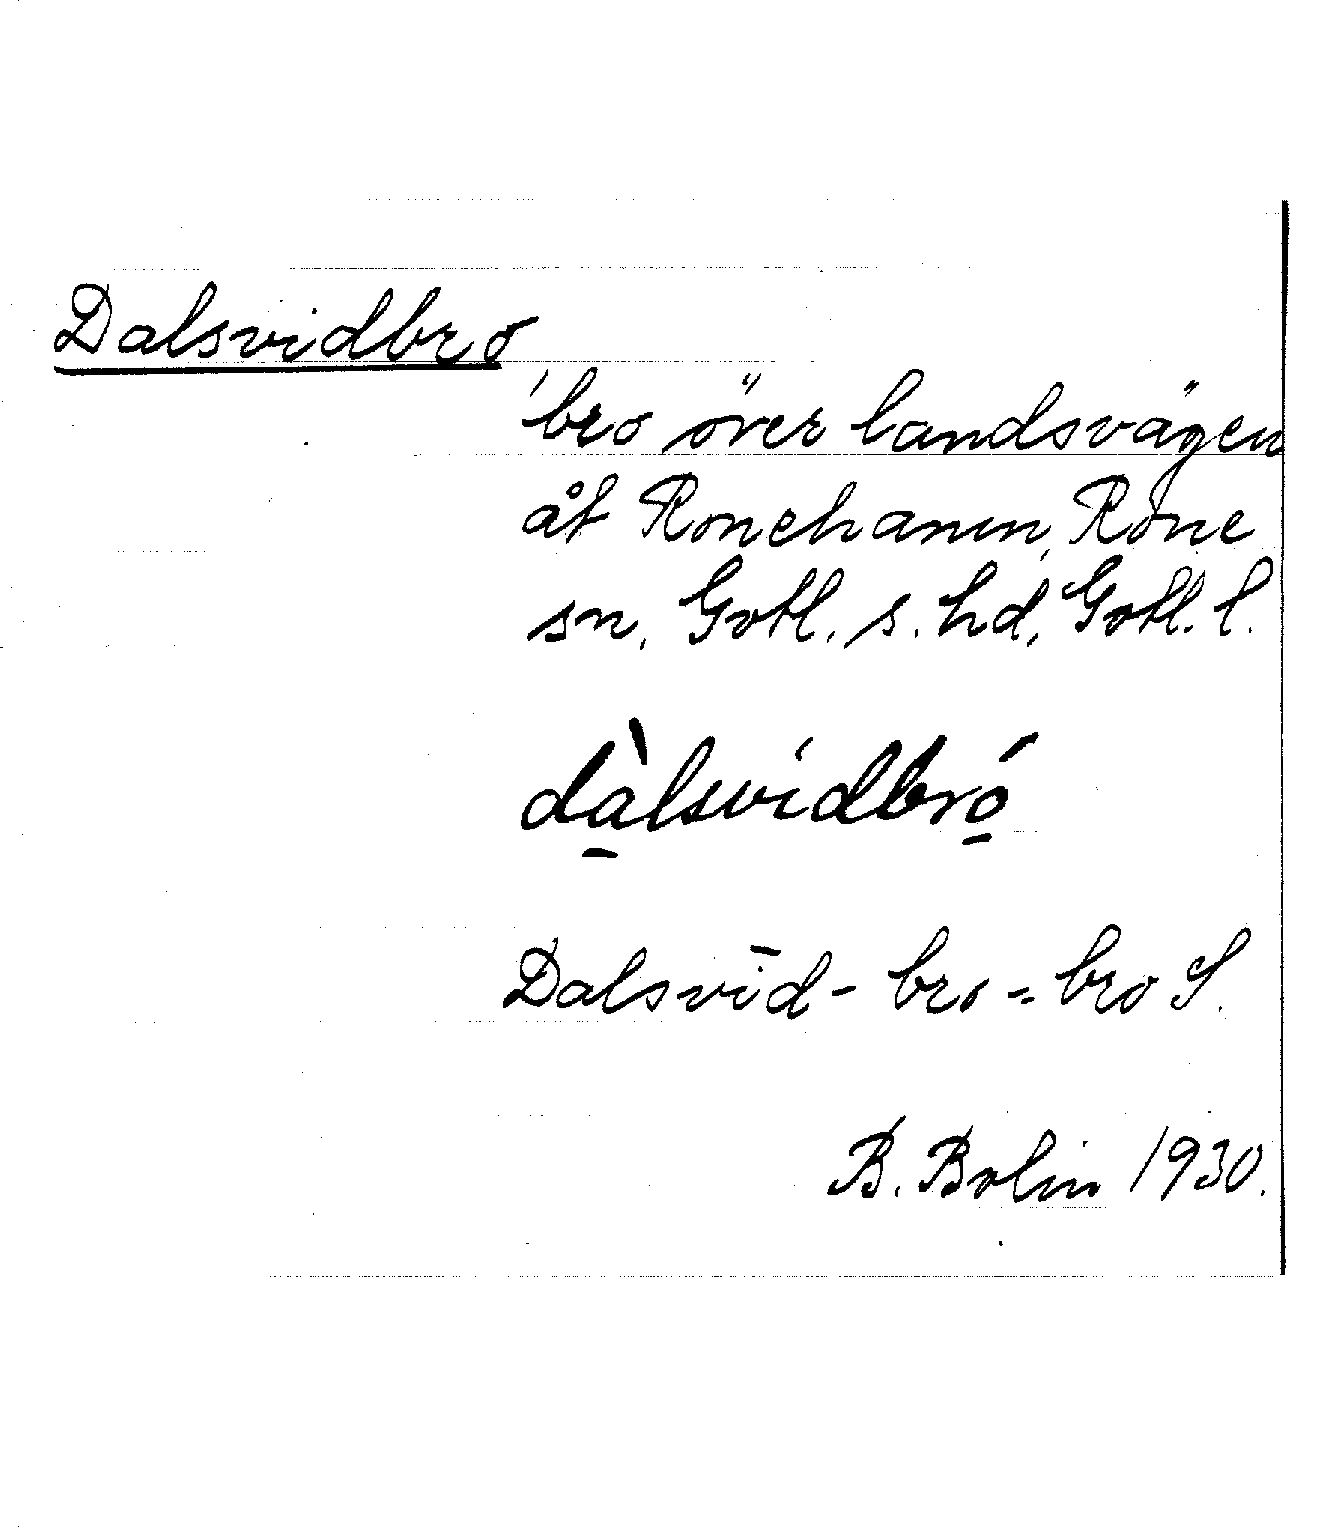 Dalsvidbro
bro över landsvägen
åt Ronehamn, Rone
sn, Gotl. s. hd, Gotl. l.
dà̱lsvidbró̱
Dalsvīd - bro = bro S.
B. Bolin 1930.